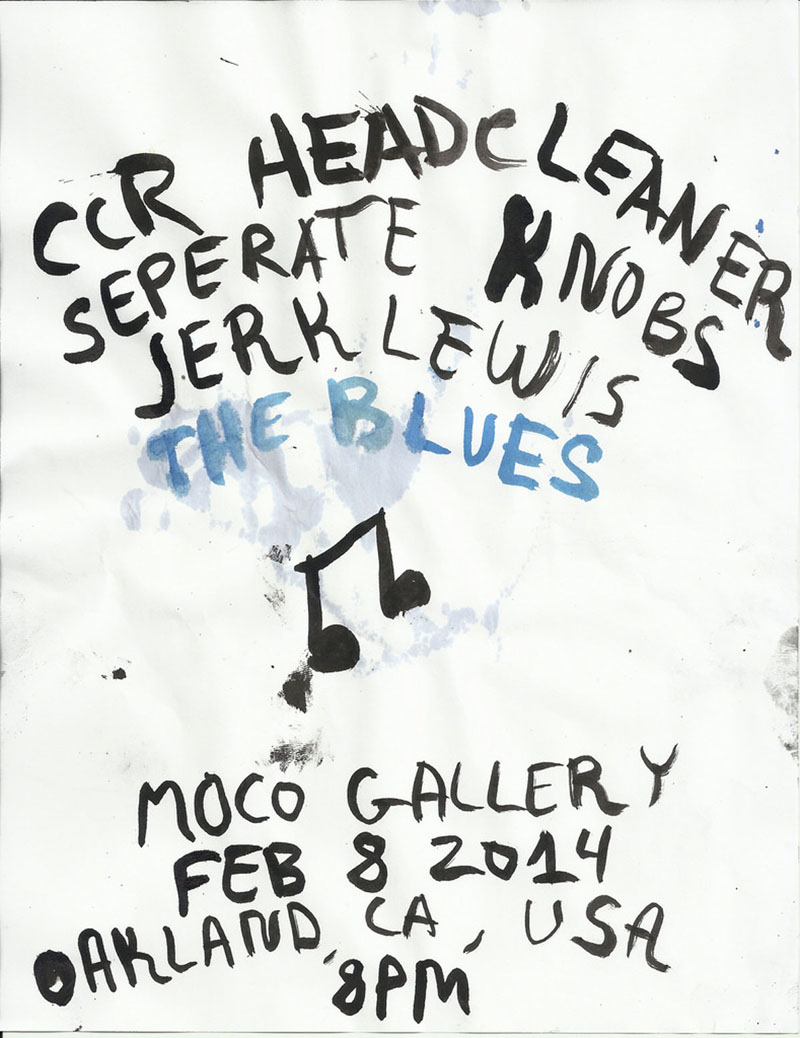 CCR HEADCLEANER
SEPERATE KNOBS
JERK LEWIS
THE BLUES
MOCO GALLERY
FEB 8 2014
OAKLAND, CA, USA
8PM